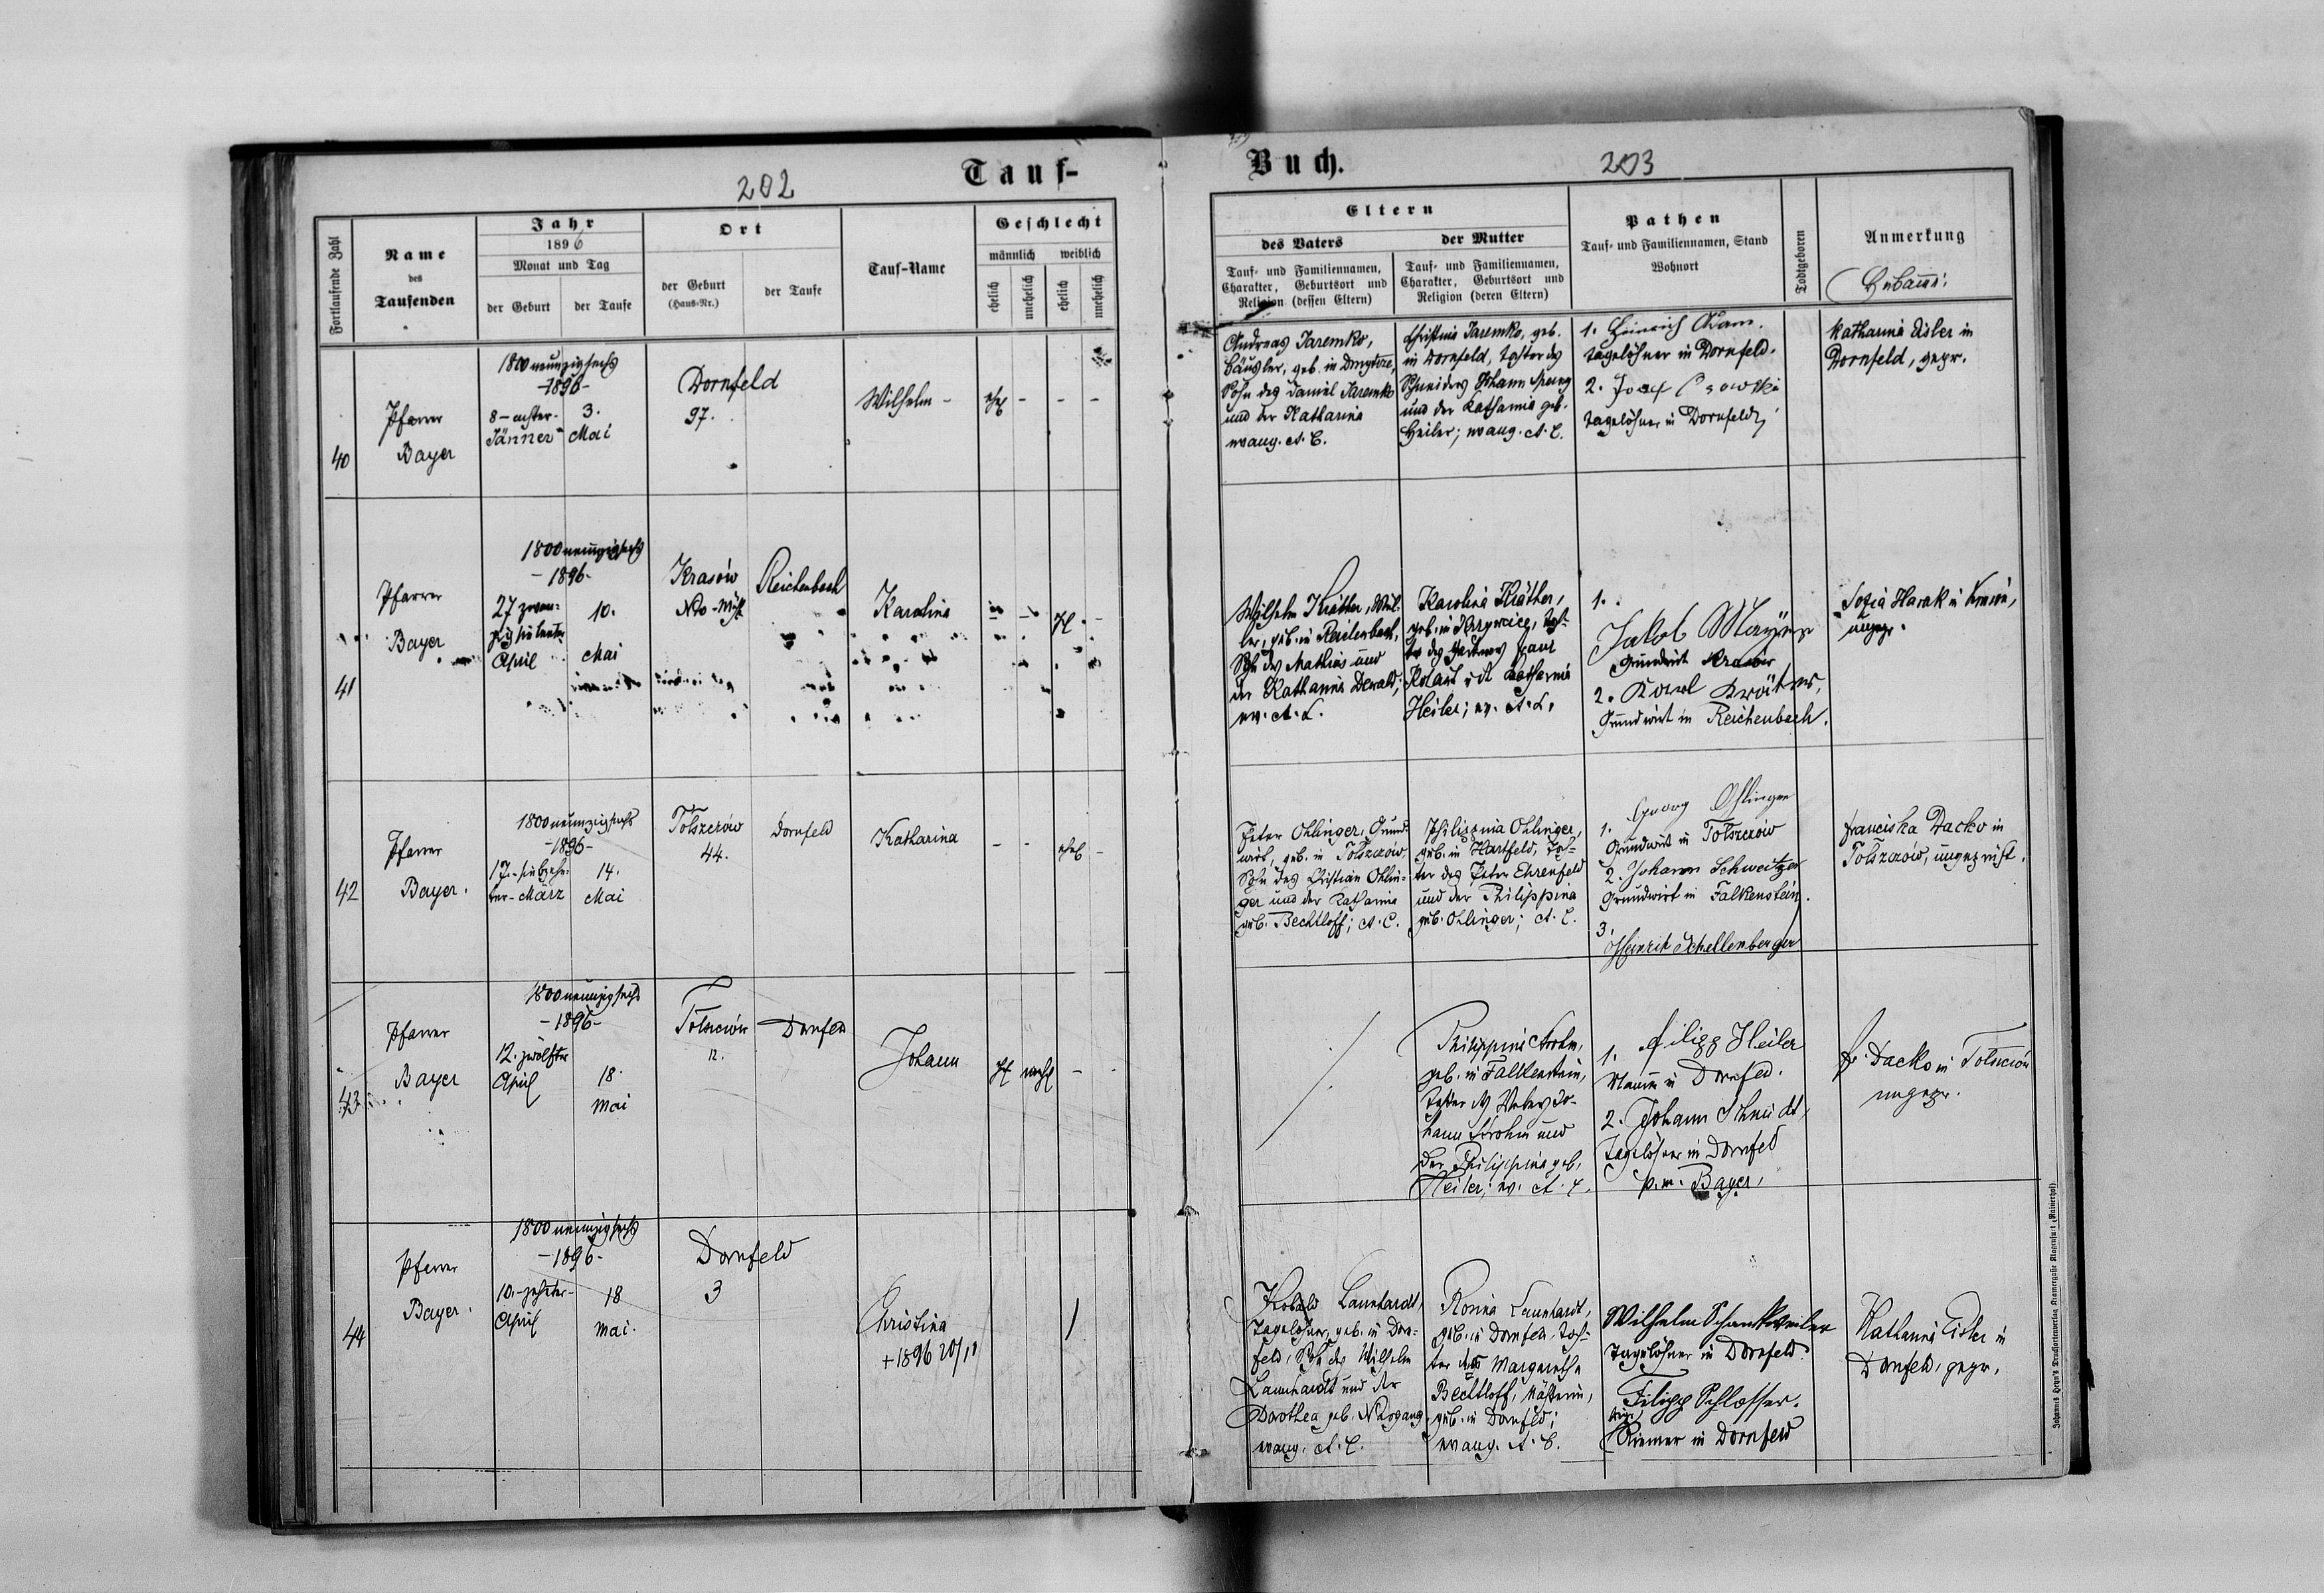 202
Tauf-
Fortlaufende Zahl
Name
des
Taufenden
Jahr
1896
Monat und Tag
der Geburt
der Taufe
Ort
der Geburt
(Haus-Nr.)
der Taufe
Tauf-Name
Geschlecht
männlich
weiblich
ehelich
unehelich
ehelich
unehelich
40
Pfarrer
Bayer
1800 neunzigsechs
-1896-
8-achter-
Jänner
3.
Mai
Dornfeld
97.
Wilhelm -
ehel
-
-
-
41
Pfarrer
Bayer
1800 neunzigsechs
-1896-
27 zwan-
zigsiebenter
April
10.
Mai
Krasów
Reichenbach
Karolina
42
Pfarrer
Bayer.
1800 neunzigsechs
-1896-
17.-siebzehn-
ter-März
14.
Mai
Tolszczów
44.
Dornfeld
Katharina
-
-
ehel
-
43
Pfarrer
Bayer
1800 neunzigsechs
-1896-
12. zwölfter
April
18.
Mai
Tolszczów
12.
Dornfeld
Johann
unehel
-
44
Pfarrer
Bayer.
1800 neunzigsechs
-1896-
10.-zehnter-
April
18
Mai.
Dornfeld
3
Christina
+ 1896 20/11
Buch.
203
Eltern
des Vaters
Tauf- und Familiennamen,
Charakter, Geburtsort und
Religion (dessen Eltern)
der Mutter
Tauf- und Familiennamen,
Charakter, Geburtsort und
Religion (deren Eltern)
Pathen
Tauf- und Familiennamen, Stand
Wohnort
Todtgeboren
Anmerkung
Hebamme:
Andreas Jaremko,
Häusler, geb. in
Sohn des Daniel Jaremko
und der Katharina
evang. A. C.
Christina Jaremko, geb.
in Dornfeld, Tochter des
Schneiders Johann
und der Katharina geb.
Heiler; evang. A. C.
1. Heinrich Adam.
Tagelöhner in Dornfeld.
2. Josef
Tagelöhner in Dornfeld
Katharina Eisler in
Dornfeld, gepr.
Wilhelm Kräther, Mül-
ler, geb. in Reichenbach,
Sohn des Mathias und
der Katharina Dewald;
ev. A. C.
Karolina Kräther,
geb. in
ter des
und Katharina
Heiler; ev. A. C.
1.
Jakob Mayer
Grundwirt Krasów
2. Karl Kräter,
Grundwirt in Reichenbach.
Sofia Harak in Krasów,
ungepr.
Peter Ohlinger, Grund-
wirt, geb. in Tolszczów,
Sohn des Christian Ohlin-
ger und der Katharina
geb. Bechtloff; A. C.
Philippina Ohlinger,
geb. in Hartfeld, Toch-
ter des Peter Ehrenfeld
und der Philippina
geb. Ohlinger; A. C.
1. Georg Ohlinger
Grundwirt in Tolszczów
2. Johann Schweitzer
Grundwirt in Falkenstein.
3.
Heinrich Schellenberger
Franciska Dacko in
Tolszczów, ungeprüft.
Philippina Strohm,
geb. in Falkenstein,
Tochter des Webers Jo-
hann Strohm und
der Philippina geb.
Heiler; ev. A. C.
1. Filipp Heiler
in Dornfeld.
2. Johann Schmidt,
Tagelöhner in Dornfeld
p.m. Bayer.
Fr. Dacko in Tolszczów
ungepr.
Launhardt,
Tagelöhner, geb. in Dorn-
feld, Sohn des Wilhelm
Launhardt und der
Dorothea geb.
evang. A. C.
Rosina Launhardt,
geb. in Dornfeld, Toch-
ter der Margaretha
Bechtloff,
geb. in Dornfeld;
evang. A. C.
Wilhelm Schankweiler
Tagelöhner in Dornfeld.
Filipp Schlosser.
Riemer in Dornfeld
Katharina Eisler in
Dornfeld, gepr.